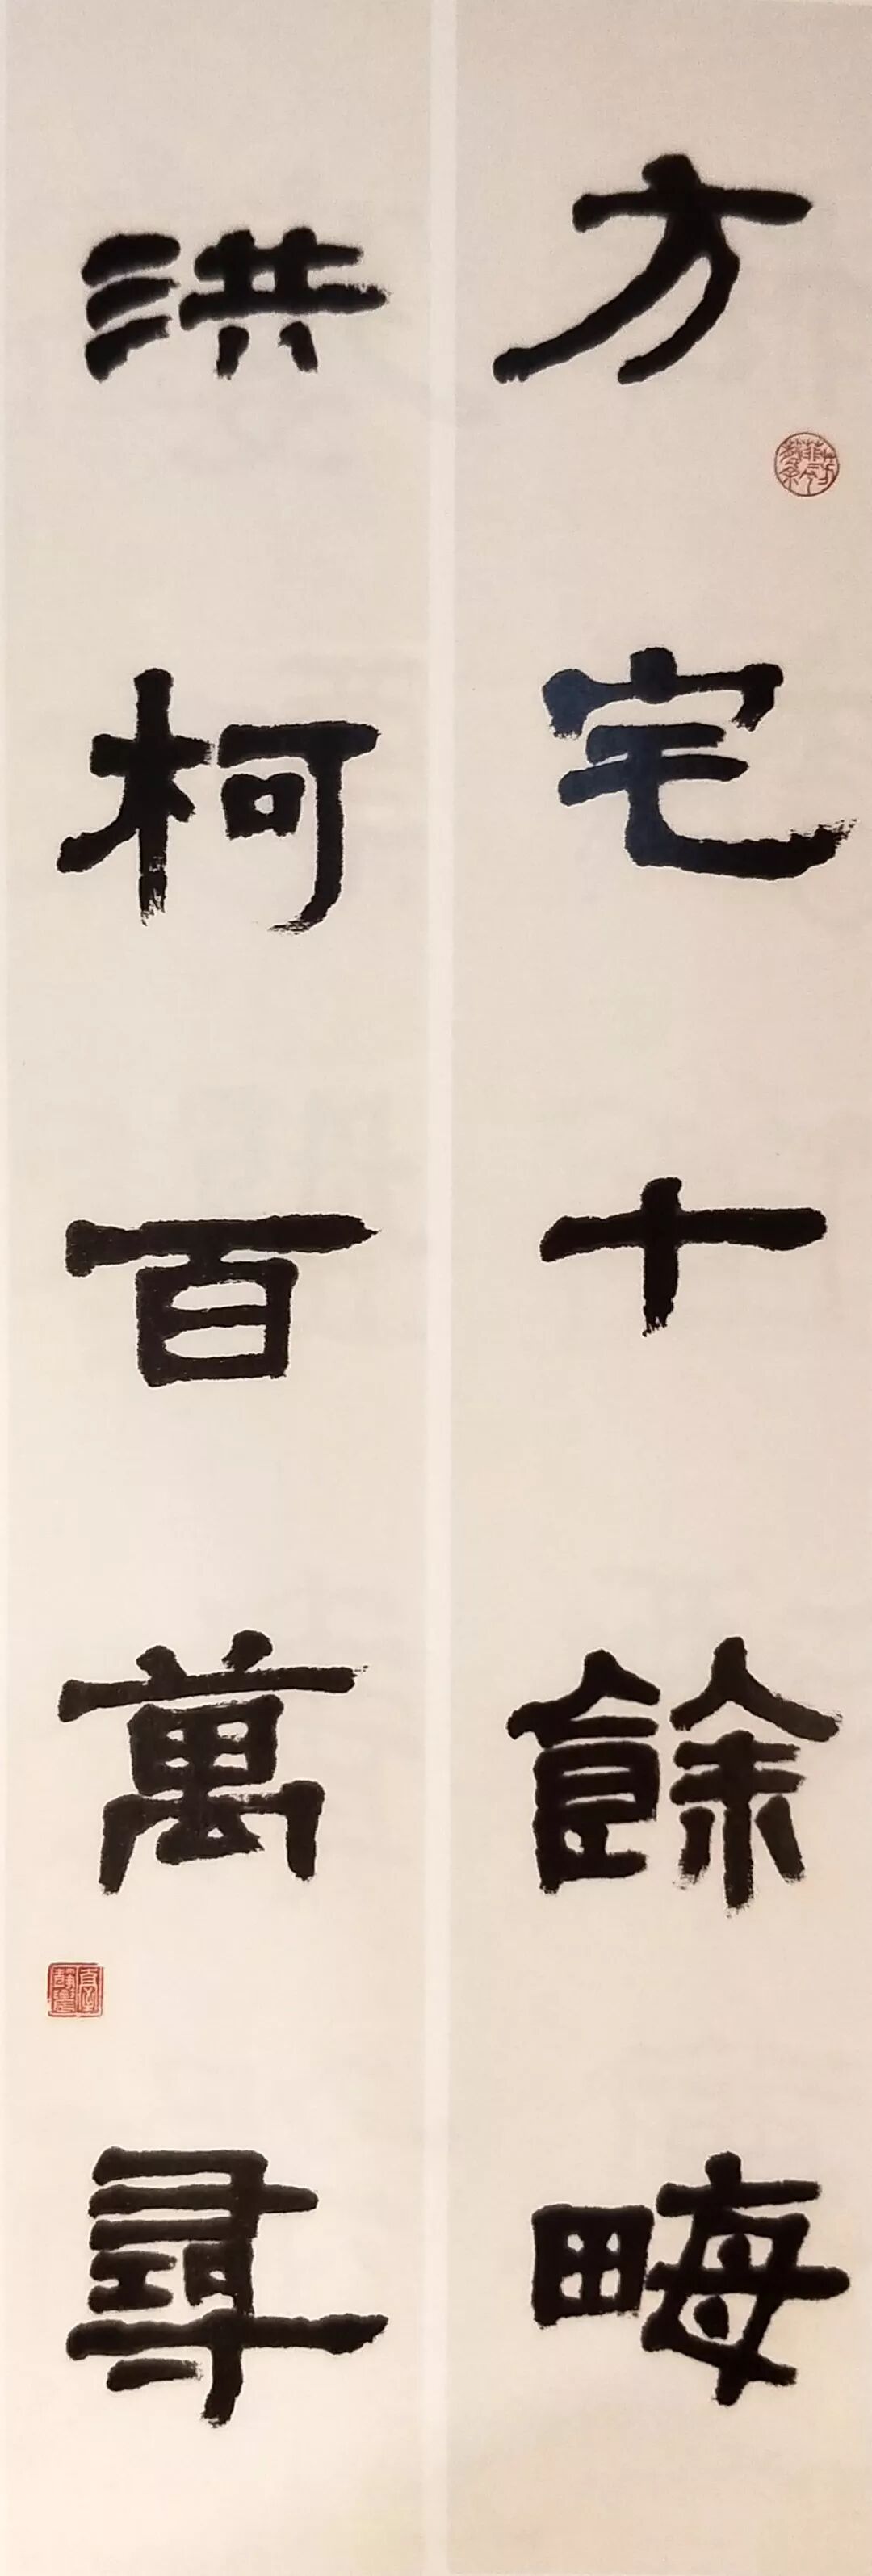 方宅十餘畮
洪柯百萬尋